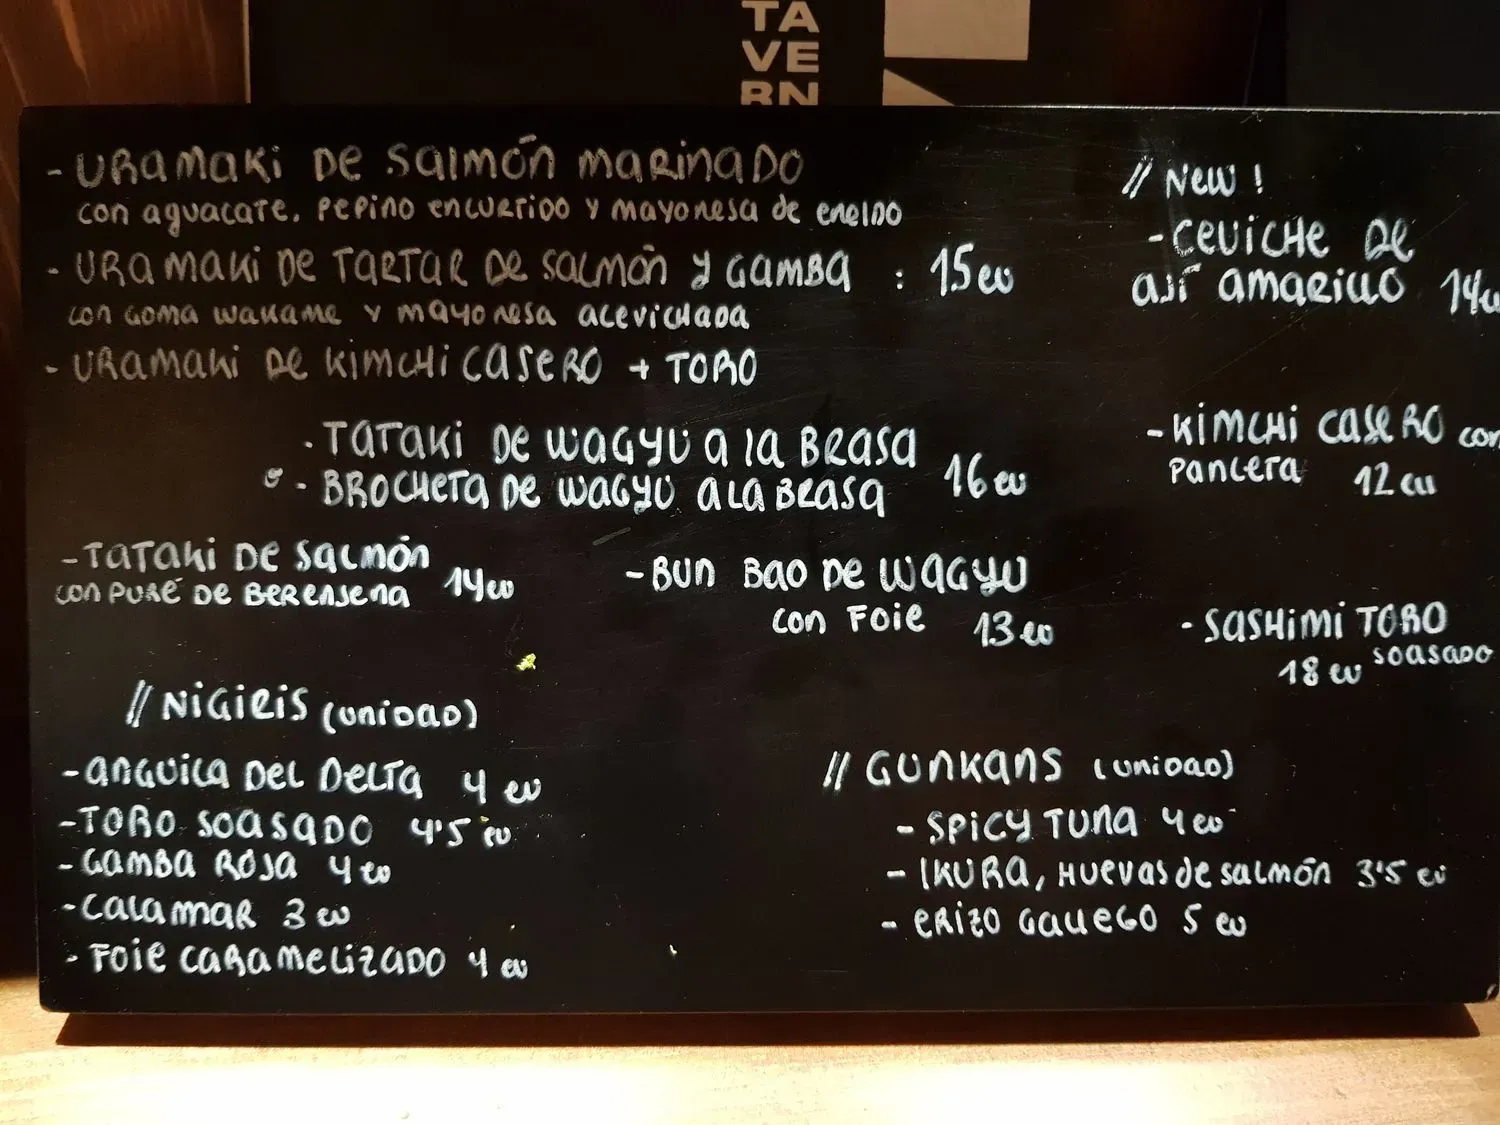 TA
VE
RN
- URAMAKI DE SALMÓN MARINADO
con aguacate, PEPINO encurtido y mayonesa de eneldo
- URAMAKI DE TARTAR DE SALMÓN Y GAMBA : 15 eu
con goma wakame y mayonesa acevichada
- URAMAKI DE KIMCHI CASERO + TORO
- TATAKI DE WAGYU A LA BRASA
- BROCHETA DE WAGYU A LA BRASA
16 eu
- TATAKI DE SALMÓN
con PURÉ DE BERENJENA 14 eu
- BUN BAO DE WAGYU
con FOIE 13 eu
// NEW !
- CEVICHE DE
AJÍ AMARILLO 14 eu
- KIMCHI CASERO con
PANCETA 12 eu
- SASHIMI TORO
soasado
18 eu
// NIGIRIS (UNIDAD)
- ANGUILA DEL DELTA 4 eu
- TORO SOASADO 4'5 eu
- GAMBA ROJA 4 eu
- CALAMAR 3 eu
- FOIE CARAMELIZADO 4 eu
// GUNKANS (UNIDAD)
- SPICY TUNA 4 eu
- IKURA, HUEVAS de SALMÓN 3'5 eu
- ERIZO GALLEGO 5 eu